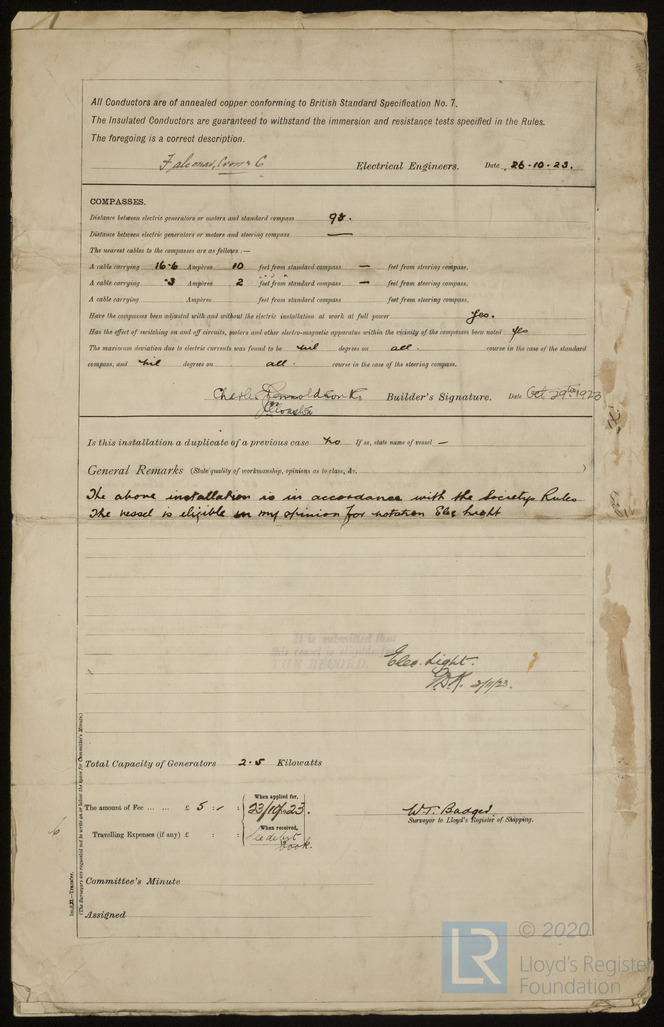 All Conductors are of annealed copper conforming to British Standard Specification No. 7.
The Insulated Conductors are guaranteed to withstand the immersion and resistance tests specified in the Rules.
The foregoing is a correct description.
Electrical Engineers. Date 26.10.23.
COMPASSES.
Distance between electric generators or motors and standard compass
Distance between electric generators or motors and steering compass —
The nearest cables to the compasses are as follows :—
A cable carrying 16.6 Ampères 10 feet from standard compass — feet from steering compass.
A cable carrying .3 Ampères 2 feet from standard compass — feet from steering compass.
A cable carrying Ampères feet from standard compass feet from steering compass.
Have the compasses been adjusted with and without the electric installation at work at full power Yes.
Has the effect of switching on and off circuits, motors and other electro-magnetic apparatus within the vicinity of the compasses been noted yes
The maximum deviation due to electric currents was found to be nil degrees on all course in the case of the standard
compass, and nil degrees on all course in the case of the steering compass.
Builder's Signature. Date Oct 29th 1923
Is this installation a duplicate of a previous case no If so, state name of vessel —
General Remarks (State quality of workmanship, opinions as to class, &c. )
The above installation is in accordance with the Societys Rules
The vessel is eligible in my opinion for notation Elec Light
It is submitted that
this vessel is eligible for
THE RECORD.
Elec. Light.
2/11/23.
Total Capacity of Generators 2.5 Kilowatts
The amount of Fee ... ... £ 5 : - :
When applied for,
23/10/23.
Travelling Expenses (if any) £ : :
When received,
W.T. Badger.
Surveyor to Lloyd's Register of Shipping.
Committee's Minute
Assigned
(The Surveyors are requested not to write on or below the space for Committee's Minute.)
© 2020
LR
Lloyd's Register
Foundation